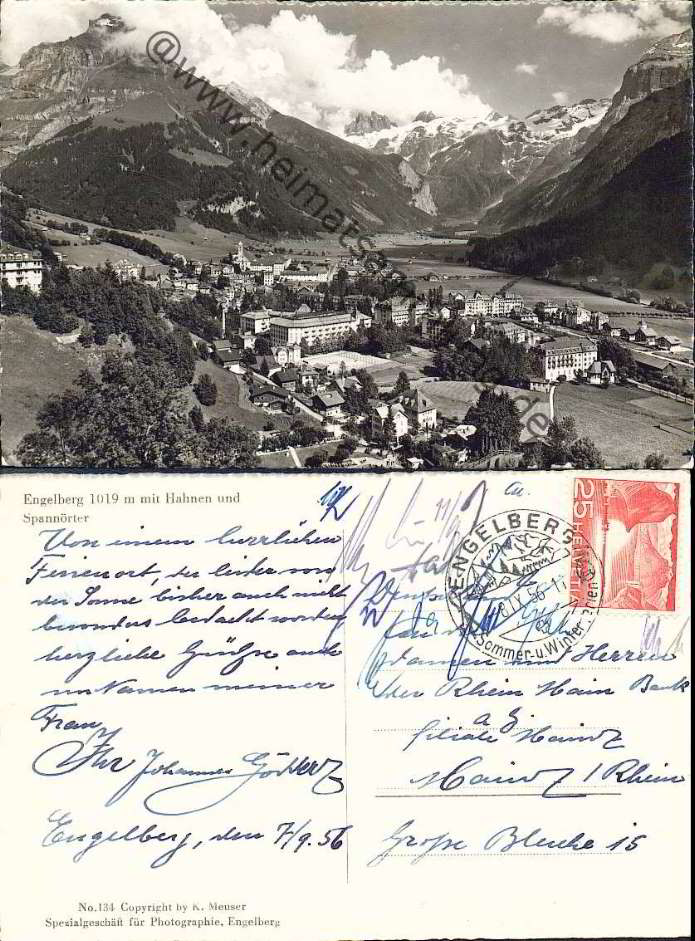 @www.heimats
Engelberg 1019 m mit Hahnen und
Spannörter
Von einem herrlichen
Ferienort, der leider von
der Sonne bisher auch nicht
besonders bedacht worden
herzliche Grüße auch
im Namen meiner
Frau
Ihr Johannes
Engelberg, den 7/9.56
No.134 Copyright by K. Meuser
Spezialgeschäft für Photographie, Engelberg
ENGELBERG
Sommer- u. Winter
25 HELVETIA
Damen und Herren
der Rhein Main Bank
a G
Filiale Mainz
Mainz / Rhein
Große Bleiche 15